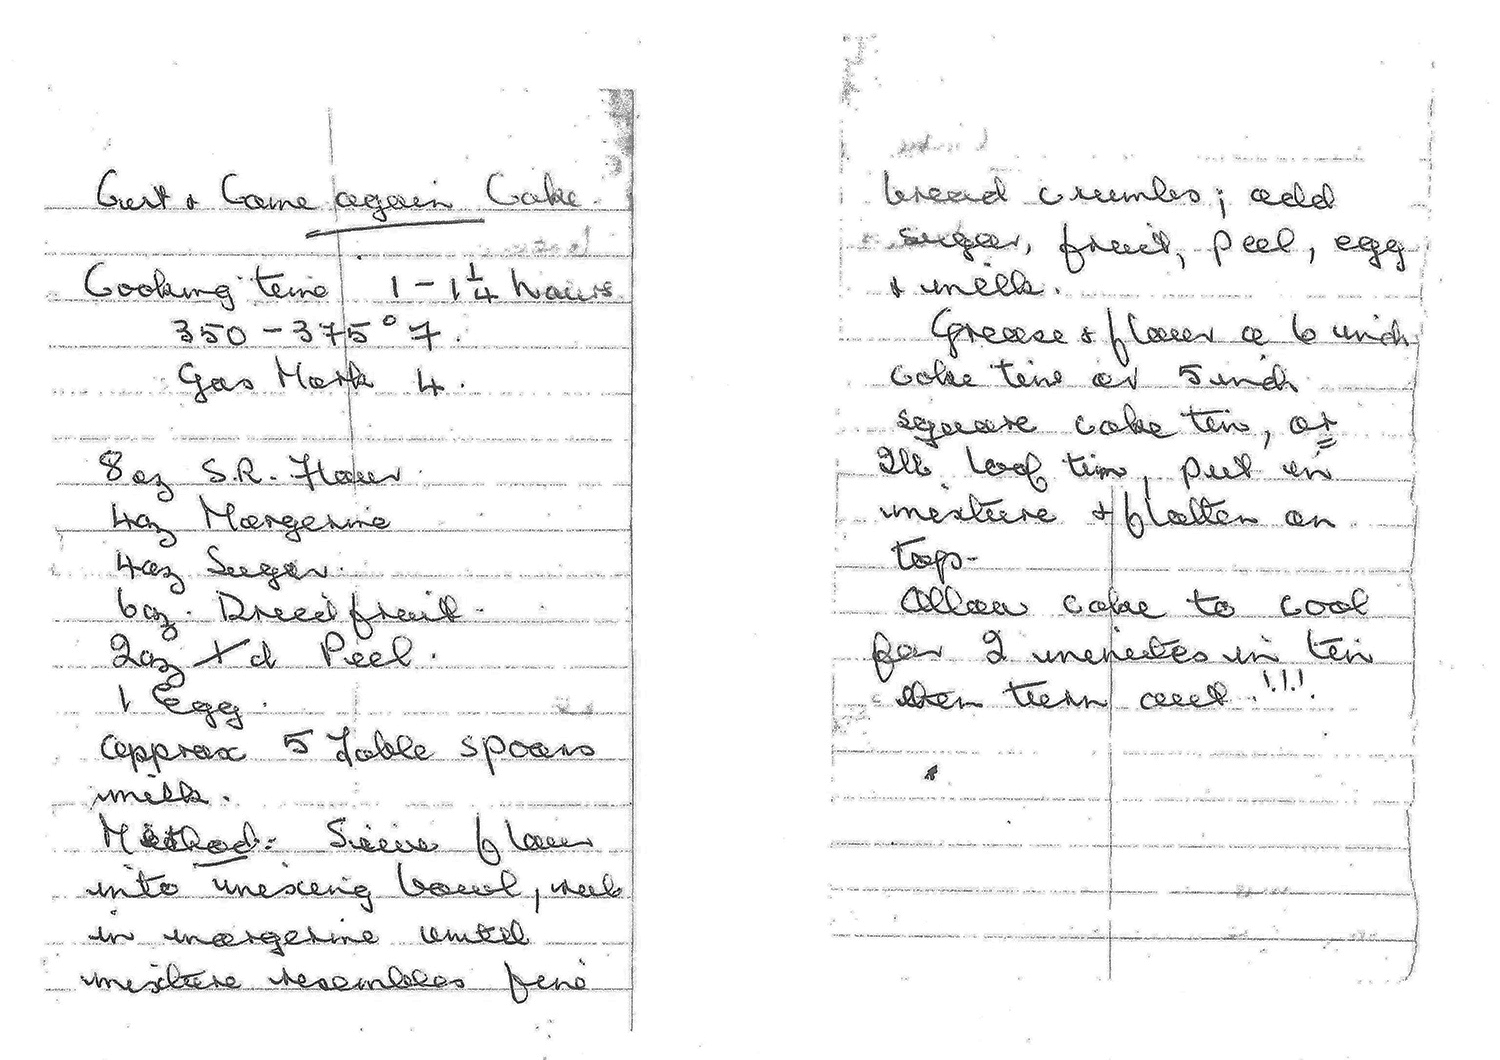 Cut & Come again Cake.
Cooking time 1 - 1 1/4 hours
350 - 375° F.
Gas Mark 4.
8oz S.R. Flour.
4oz Margerine
4oz Sugar.
6oz. Dried fruit.
2oz Xd Peel.
1 Egg.
approx 5 Table spoons
milk.
Method: Sieve flour
into mixing bowl, rub
in margerine until
mixture resembles fine
bread crumbs; add
sugar, fruit, peel, egg
& milk.
Grease & flour a 6 inch
cake tin or 5 inch
square cake tin, or
2lb loaf tin, put in
mixture & flatten on
top.
Allow cake to cool
for 2 minutes in tin
then turn out.!!!